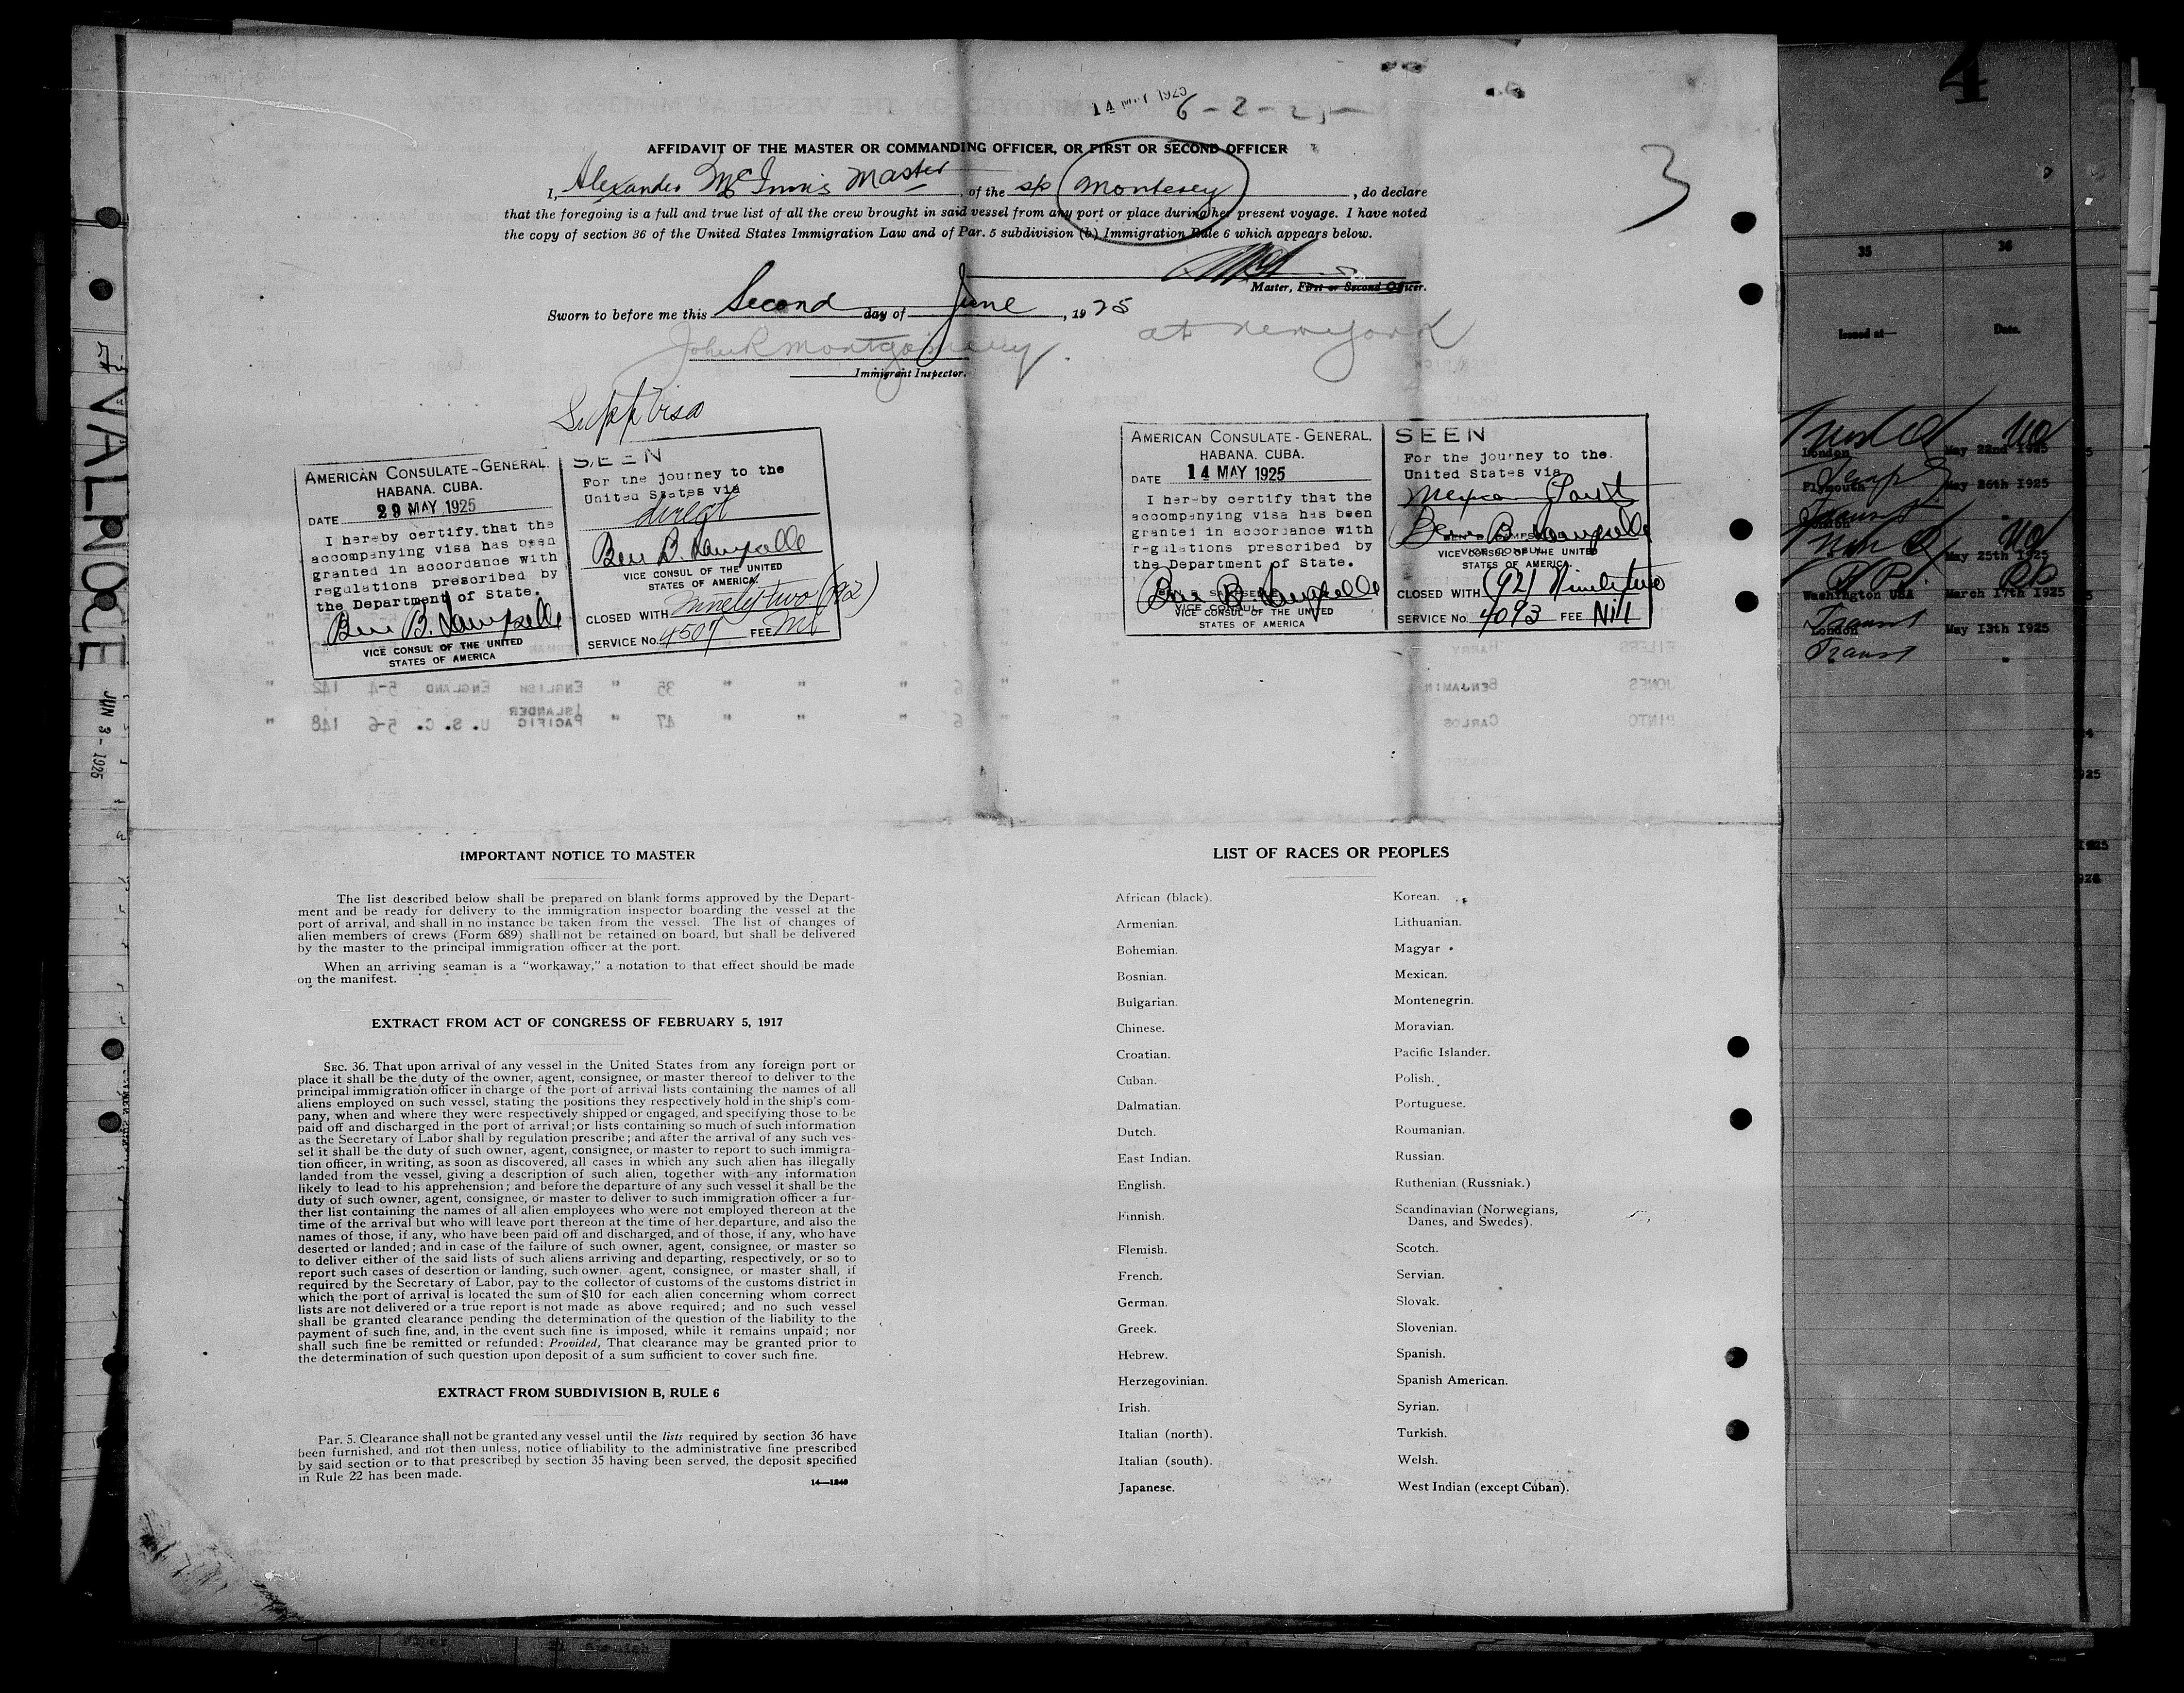 14 MAY 1925
6-2-25
AFFIDAVIT OF THE MASTER OR COMMANDING OFFICER, OR FIRST OR SECOND OFFICER
I, Alexander McInnis Master, of the s/s Monterey, do declare
that the foregoing is a full and true list of all the crew brought in said vessel from any port or place during her present voyage. I have noted
the copy of section 36 of the United States Immigration Law and of Par. 5 subdivision (b) Immigration Rule 6 which appears below.
3
Master, First or Second Officer.
Sworn to before me this Second day of June, 1925
at New York
John R Montgomery
Immigrant Inspector.
Supp Visa
AMERICAN CONSULATE-GENERAL.
HABANA. CUBA.
DATE 29 MAY 1925
I hereby certify that the
accompanying visa has been
granted in accordance with
regulations prescribed by
the Department of State.
VICE CONSUL OF THE UNITED
STATES OF AMERICA
SEEN
For the journey to the
United States via
direct
VICE CONSUL OF THE UNITED
STATES OF AMERICA.
CLOSED WITH ninety two (92)
SERVICE No. 4507 FEE Nil
AMERICAN CONSULATE-GENERAL,
HABANA. CUBA.
DATE 14 MAY 1925
I hereby certify that the
accompanying visa has been
granted in accordance with
regulations prescribed by
the Department of State.
VICE CONSUL OF THE UNITED
STATES OF AMERICA
SEEN
For the journey to the
United States via
Mexican Ports
VICE CONSUL OF THE UNITED
STATES OF AMERICA
CLOSED WITH (92) Ninety two
SERVICE No. 4093 FEE Nil
EILERS HARRY
JONES BENJAMIN " " " 6 " " " 35 " ENGLISH ENGLAND 5-4 142 "
PINTO CARLOS " " " 6 " " " 47 " PACIFIC ISLANDER U. S. C. 5-6 148 "
IMPORTANT NOTICE TO MASTER
The list described below shall be prepared on blank forms approved by the Depart-
ment and be ready for delivery to the immigration inspector boarding the vessel at the
port of arrival, and shall in no instance be taken from the vessel. The list of changes of
alien members of crews (Form 689) shall not be retained on board, but shall be delivered
by the master to the principal immigration officer at the port.
When an arriving seaman is a "workaway," a notation to that effect should be made
on the manifest.
EXTRACT FROM ACT OF CONGRESS OF FEBRUARY 5, 1917
SEC. 36. That upon arrival of any vessel in the United States from any foreign port or
place it shall be the duty of the owner, agent, consignee, or master thereof to deliver to the
principal immigration officer in charge of the port of arrival lists containing the names of all
aliens employed on such vessel, stating the positions they respectively hold in the ship's com-
pany, when and where they were respectively shipped or engaged, and specifying those to be
paid off and discharged in the port of arrival; or lists containing so much of such information
as the Secretary of Labor shall by regulation prescribe; and after the arrival of any such ves-
sel it shall be the duty of such owner, agent, consignee, or master to report to such immigra-
tion officer, in writing, as soon as discovered, all cases in which any such alien has illegally
landed from the vessel, giving a description of such alien, together with any information
likely to lead to his apprehension; and before the departure of any such vessel it shall be the
duty of such owner, agent, consignee, or master to deliver to such immigration officer a fur-
ther list containing the names of all alien employees who were not employed thereon at the
time of the arrival but who will leave port thereon at the time of her departure, and also the
names of those, if any, who have been paid off and discharged, and of those, if any, who have
deserted or landed; and in case of the failure of such owner, agent, consignee, or master so
to deliver either of the said lists of such aliens arriving and departing, respectively, or so to
report such cases of desertion or landing, such owner, agent, consignee, or master shall, if
required by the Secretary of Labor, pay to the collector of customs of the customs district in
which the port of arrival is located the sum of $10 for each alien concerning whom correct
lists are not delivered or a true report is not made as above required; and no such vessel
shall be granted clearance pending the determination of the question of the liability to the
payment of such fine, and, in the event such fine is imposed, while it remains unpaid; nor
shall such fine be remitted or refunded: Provided, That clearance may be granted prior to
the determination of such question upon deposit of a sum sufficient to cover such fine.
EXTRACT FROM SUBDIVISION B, RULE 6
Par. 5. Clearance shall not be granted any vessel until the lists required by section 36 have
been furnished, and not then unless, notice of liability to the administrative fine prescribed
by said section or to that prescribed by section 35 having been served, the deposit specified
in Rule 22 has been made.
14—1240
LIST OF RACES OR PEOPLES
African (black).
Armenian.
Bohemian.
Bosnian.
Bulgarian.
Chinese.
Croatian.
Cuban.
Dalmatian.
Dutch.
East Indian.
English.
Finnish.
Flemish.
French.
German.
Greek.
Hebrew.
Herzegovinian.
Irish.
Italian (north).
Italian (south).
Japanese.
Korean.
Lithuanian.
Magyar
Mexican.
Montenegrin.
Moravian.
Pacific Islander.
Polish.
Portuguese.
Roumanian.
Russian.
Ruthenian (Russniak.)
Scandinavian (Norwegians,
Danes, and Swedes).
Scotch.
Servian.
Slovak.
Slovenian.
Spanish.
Spanish American.
Syrian.
Turkish.
Welsh.
West Indian (except Cuban).
VALNOCE
JUN 3 - 1925
4
35 36
Issued at— Date.
London May 22nd 1925
Plymouth May 26th 1925
Transit
London "
May 25th 1925
Washington USA March 17th 1925
Transit
London May 13th 1925
Transit "